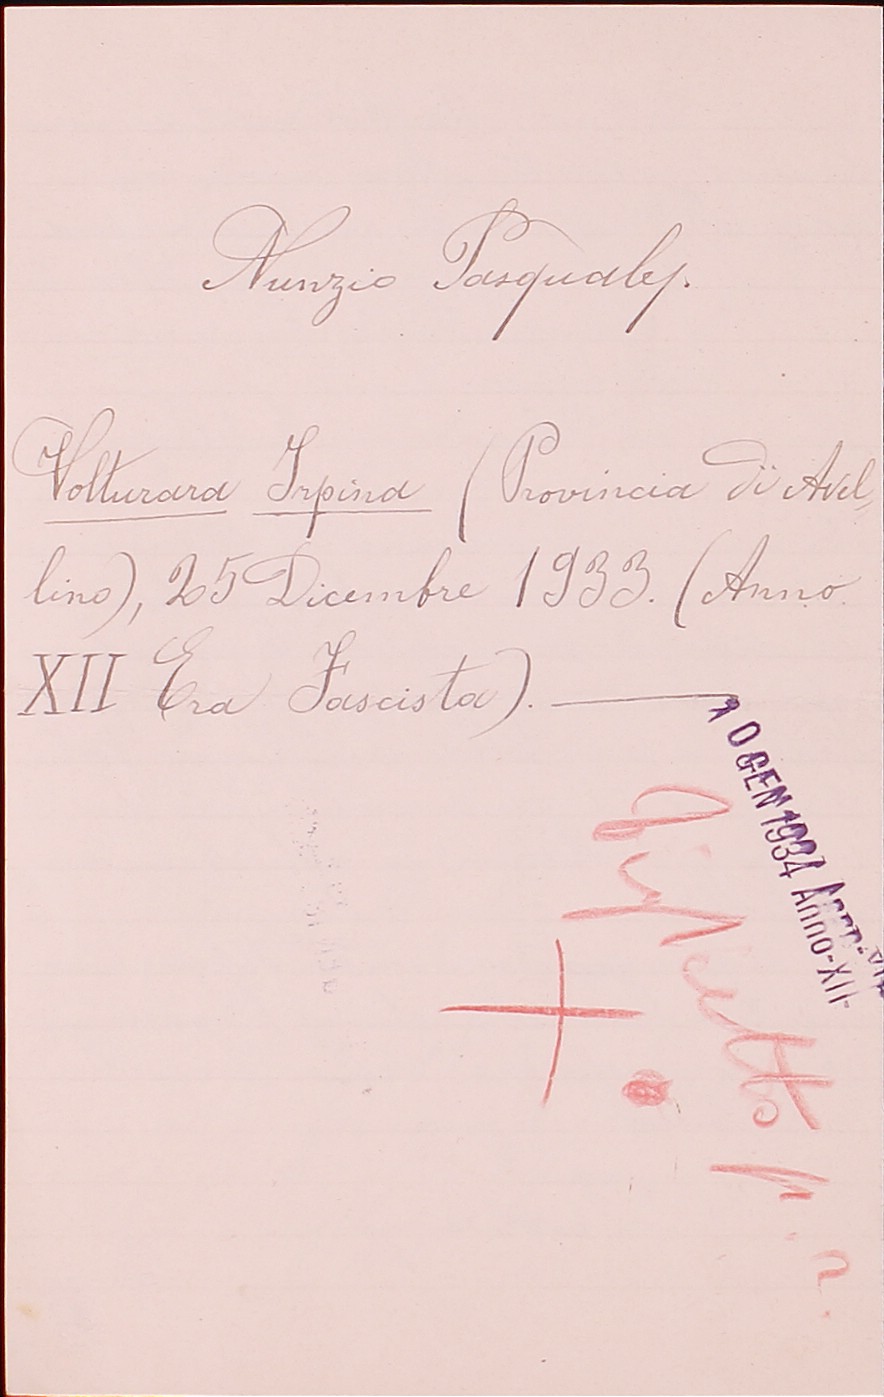 Nunzio Pasquale
Volturara Irpina (Provincia di Avel-
lino), 25 Dicembre 1933. (Anno
XII Era Fascista).
10 GEN 1934 Anno-XII-